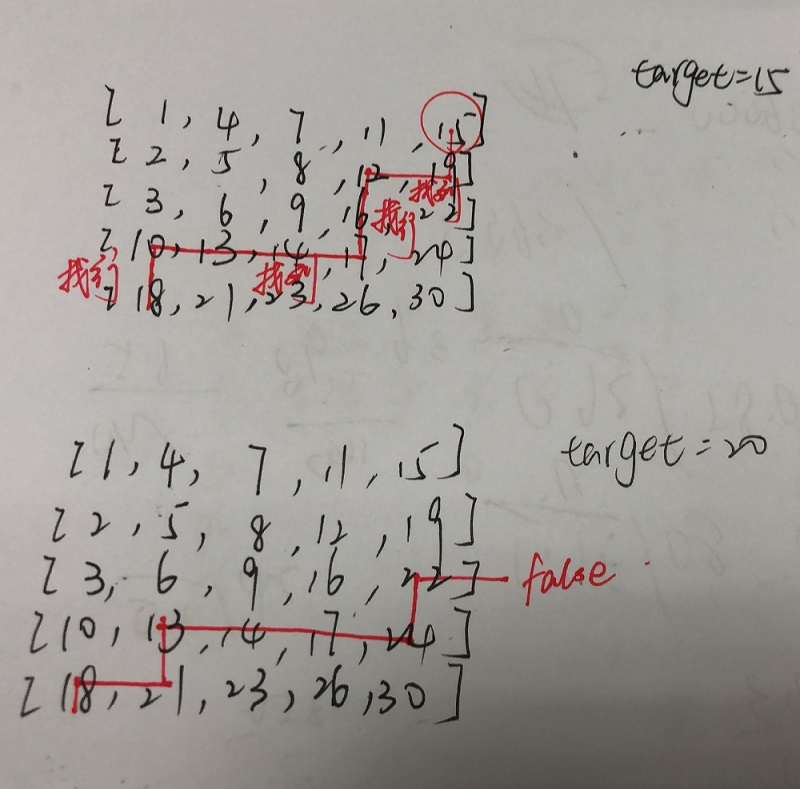 target=15
[ 1, 4, 7, 11, 15]
[ 2, 5, 8, 12, 19]
[ 3, 6, 9, 16, 22]
[ 10, 13, 14, 17, 24]
[ 18, 21, 23, 26, 30]
找列
找行
找列
找行
target=20
[1, 4, 7, 11, 15]
[2, 5, 8, 12, 19]
[3, 6, 9, 16, 22]
false
[10, 13, 14, 17, 24]
[18, 21, 23, 26, 30]